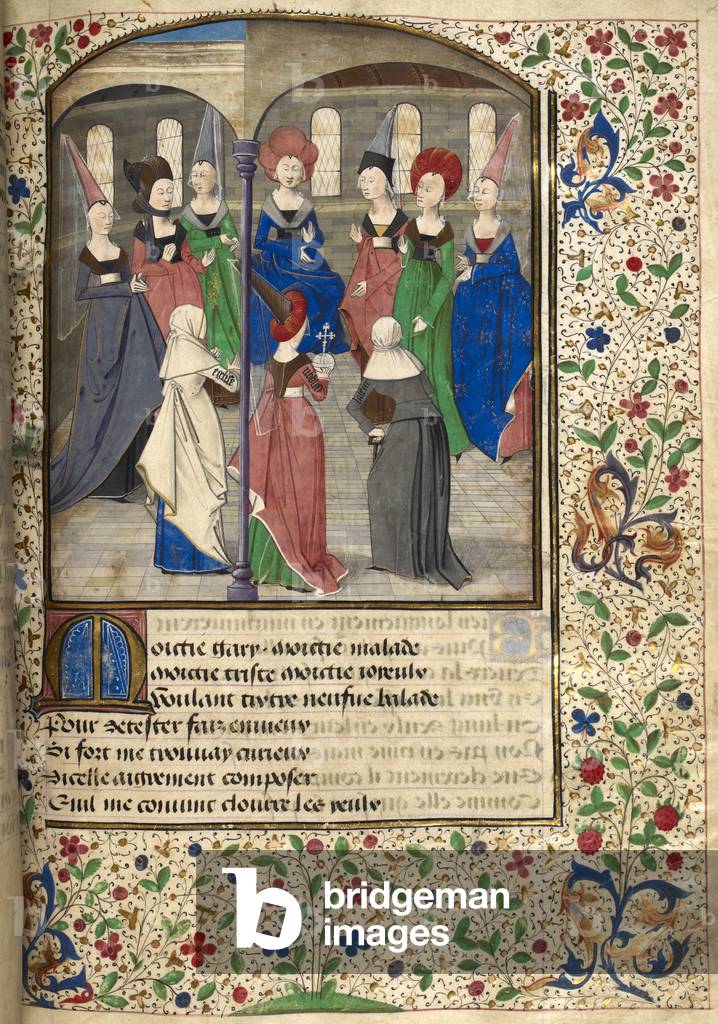 Moictie gary. Moictie malade
Moictie triste moictie ioyeulx
Voulant tixtre neufue balade
Pour detester faiz enuieux
Si fort me trouuay curieux
Dicelle autrement composer
Quil me conuint clourre les yeulx
b bridgeman
images